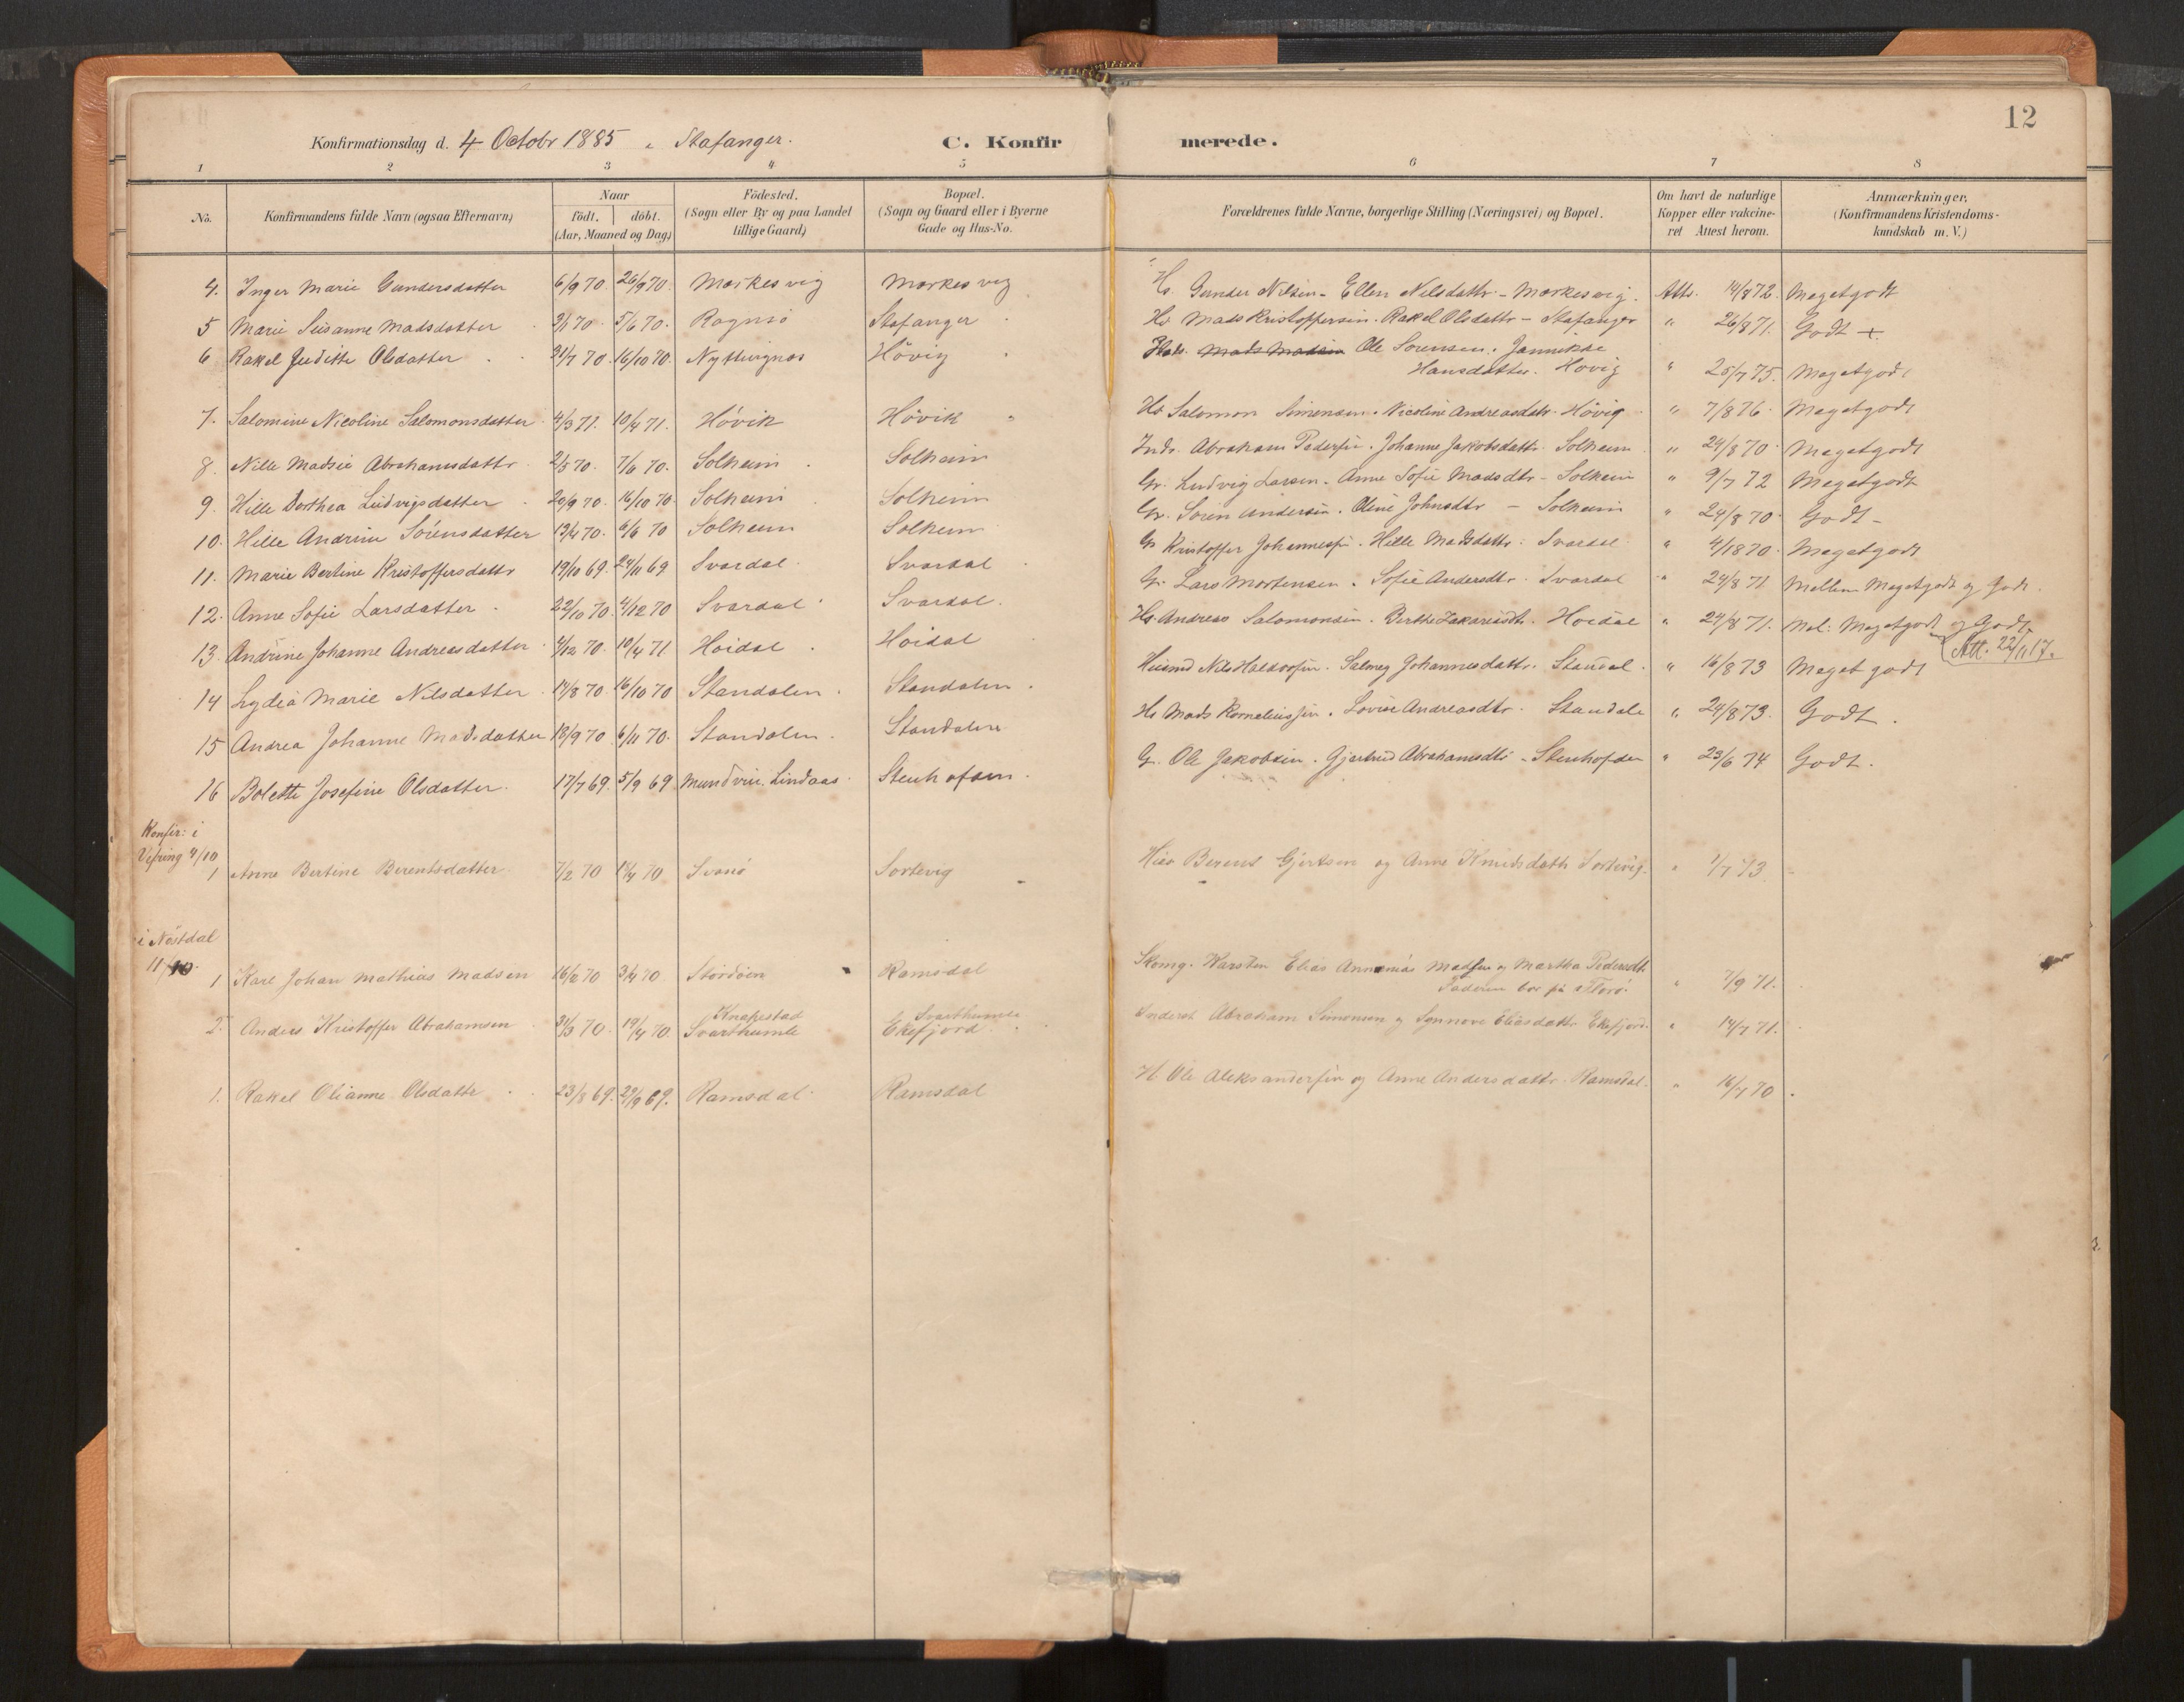 12
Konfirmationsdag d. 4 Octobr 1885 i Stafanger.
C. Konfirmerede.
1 2 3 4 5 6 7 8
No. Konfirmandens fulde Navn (ogsaa Efternavn) Naar födt. döbt. (Aar, Maaned og Dag) Födested. (Sogn eller By og paa Landet tillige Gaard) Bopæl. (Sogn og Gaard eller i Byerne Gade og Hus-No. Forældrenes fulde Navne, borgerlige Stilling (Næringsvei) og Bopæl. Om havt de naturlige Kopper eller vakcineret Attest herom. Anmærkninger, (Konfirmandens Kristendomskundskab m. V.)
4. Inger Marie Gundersdatter 6/9 70. 26/9 70. Markesvig Markesvig Hs. Gunder Nilsen - Ellen Nilsdattr. - Markesvig. Atts. 14/8 72. Megetgodt
5 Marie Susanne Madsdatter 2/1 70. 5/6 70. Ragnsö Stafanger Hs Mads Kristoffersen. Rakel Olsdattr - Stafanger " 26/8 71. Godt +
6 Rakel Juditte Olsdatter 21/7 70. 16/10 70. Nyttingnes Hövig Mads Madsen Ole Sorensen. Jannikke
Hansdatter. Hövig " 25/7 75. Megetgodt
7. Salomine Nicoline Salomonsdatter 4/3 71. 10/4 71. Hövik Hövik Hs Salomon Simensen. Nicoline Andreasdatr. Hövig " 7/8 76. Megetgodt
8. Nille Madsie Abrahamsdattr 2/5 70. 7/6 70. Solheim Solheim Inds. Abraham Pedersen. Johanne Jakobsdattr. Solheim " 24/8 70. Megetgodt
9. Hille Dorthea Ludvigsdatter 20/9 70. 16/10 70. Solheim Solheim Gr. Ludvig Larsen. Anne Sofie Madsdtr - Solheim " 9/7 72 Megetgodt
10. Hille Andrine Sörensdatter 13/4 70. 6/6 70 Solheim Solheim Gr. Sören Andersen. Oline Johnsdtr - Solheim " 24/8 70. Godt -
11. Marie Bertine Kristoffersdattr 19/10 69. 24/11 69 Svardal Svardal Gr Kristoffer Johannessen. Hille Madsdattr. Svardal " 4/18 70. Megetgodt
12. Anne Sofie Larsdatter 22/10 70. 4/12 70 Svardal Svardal. Gr. Lars Mortensen. Sofie Andersdtr. Svardal " 24/8 71 Mellem Megetgodt og Godt.
13. Andrine Johanne Andreasdatter 4/12 70. 10/4 71 Hoidal Hoidal Hs. Andreas Salomonsen. Berthe Zakariasdtr. Hoidal " 24/8 71. Mel: Megetgodt og Godt
Att. 22/11 17.
14 Lydia Marie Nilsdatter 14/8 70. 16/10 70 Standalen. Standalen. Huusmd Nils Haldorsen. Salmeg Johannesdattr. Standal. " 16/8 73 Meget godt
15 Andrea Johanne Madsdatter 18/9 70 6/11 70. Standalen. Standalen Hs Mads Korneliussen. Lovise Andreasdtr. Standale " 24/8 73. Godt.
16 Bolette Josefine Olsdatter. 17/7 69. 5/9 69. Mundvin. Lindaas. Stenhofden. G. Ole Jakobsen. Gjertrud Abrahamsdtr. - Stenhofden " 23/6 74 Godt.
Konfir: i
Vefring 4/10
1 Anne Bertine Berentsdatter 7/2 70 18/4 70 Svanö Sortevig Berent Gjertsen og Anne Knudsdattr Sortevig. " 1/7 73
i Nöstdal
11/10.
1 Karl Johan Mathias Madsen 16/2 70 3/4 70 Stördöen Ramsdal Skomg. Karsten Elias Annanias Madsen og Martha Pedersdtr.
Faderen bor på Florö. " 7/9 71.
2. Anders Kristoffer Abrahamsen 31/3 70. 19/4 70. Knapstad Svarthumle Svarthumle Ekefjord. Inderst Abraham Simonsen og Synnove Eliasdattr. Ekefjord. " 14/7 71.
1. Rakel Olianne Olsdattr 23/8 69. 29/9 69. Ramsdal Ramsdal H. Ole Aleksandersen og Anne Andersdattr. Ramsdal. " 16/7 70.